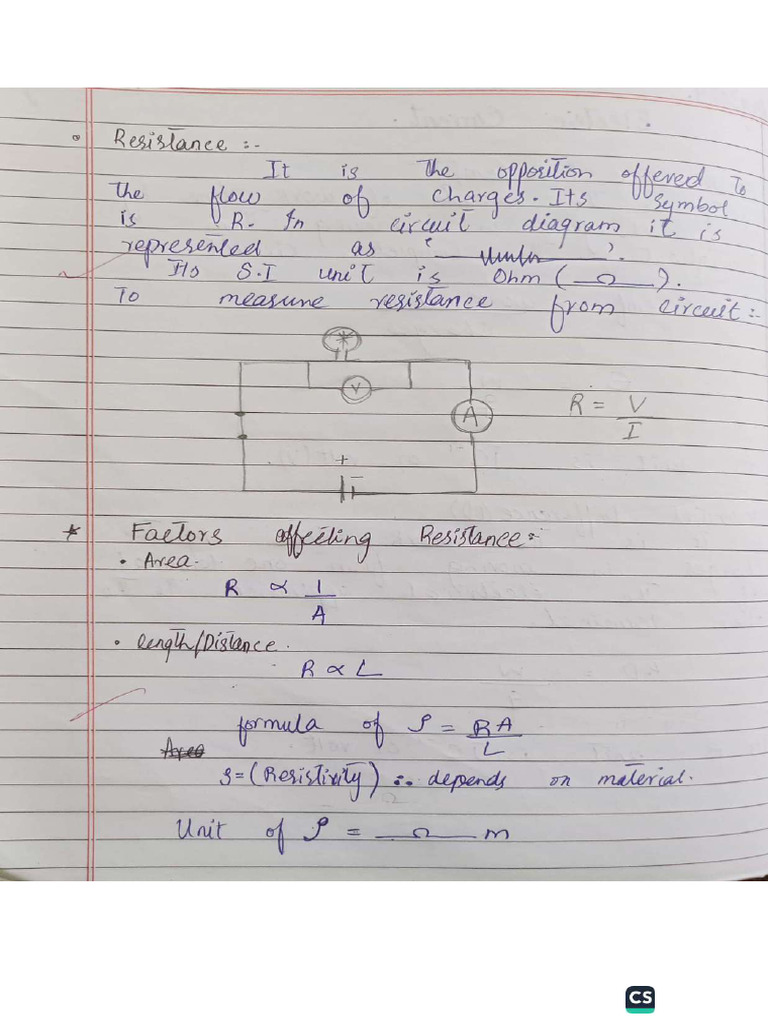 Resistance :-
It is the opposition offered to
the flow of charges. Its symbol
is R. In circuit diagram it is
represented as ' '.
Its S.I unit is Ohm (Ω).
To measure resistance from circuit :-
V
A
R = V
I
+ -
* Factors affecting Resistance :-
• Area.
R ∝ 1
A
• length/Distance.
R ∝ L
formula of ρ = RA
L
Area
ρ = (Resistivity) ∴ depends on material.
Unit of ρ = Ω m
CS